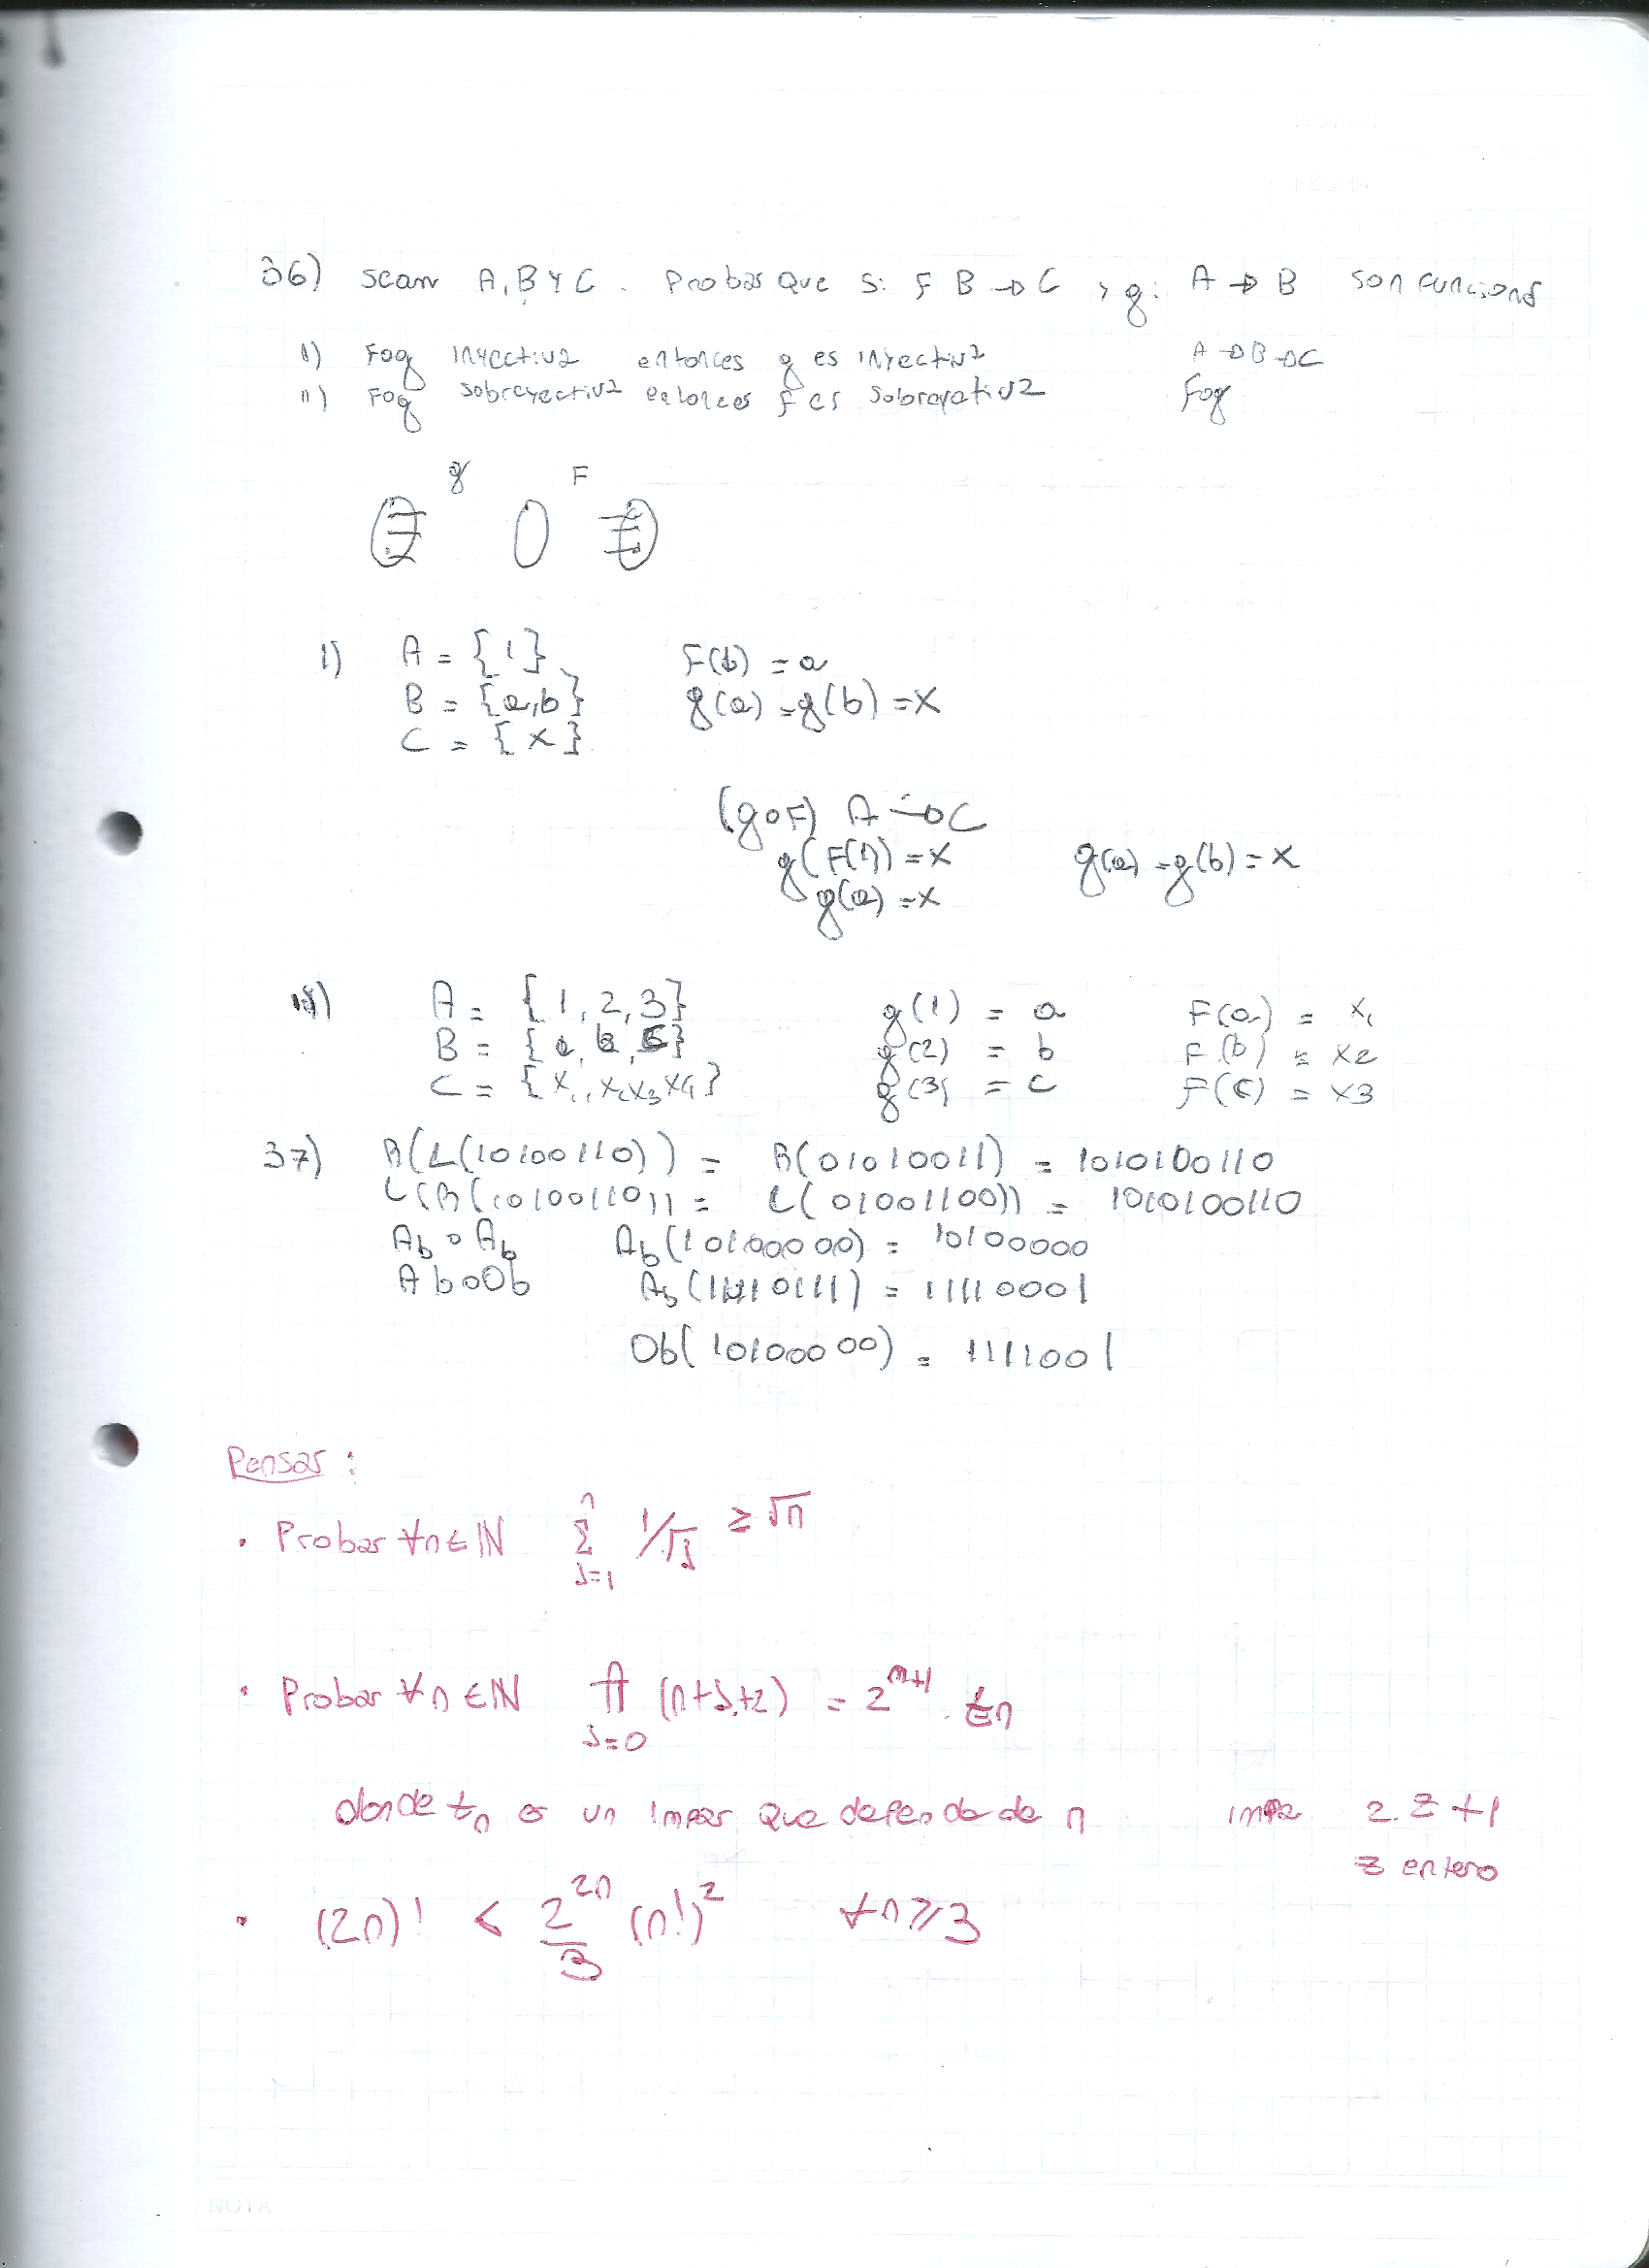 36) Sean A, B y C. Probar que si f B → C y g: A → B son funciones
I) Fog inyectiva entonces g es inyectiva A → B → C
II) Fog sobreyectiva entonces f es sobreyectiva fog
g F
I) A = {1} F(1) = a
B = {a,b} g(a) = g(b) = x
C = {x}
(goF) A → C
g(F(1)) = x g(a) = g(b) = x
g(a) = x
A = {1, 2, 3} g(1) = a F(a) = x1
B = {a, b, c} g(2) = b F(b) = x2
C = {x1, x2 x3 x4} g(3) = c F(c) = x3
37) R(L(10100110)) = R(01010011) = 1010100110
L(R(10100110)) = L(01001100)) = 1010100110
Ab o Ab Ab(10100000) = 10100000
Ab o Ob Ab(11110111) = 11110001
Ob(10100000) = 1111001
Pensar:
• Probar ∀n∈ℕ n Σ j=1 1/√j ≥ √n
• Probar ∀n∈ℕ π j=0 (n+j+2) = 2^(n+1) . tn
donde tn es un impar que depende de n impar 2.z+1
z entero
• (2n)! < 2^(2n)/3 (n!)^2 ∀n≥3
NOTA